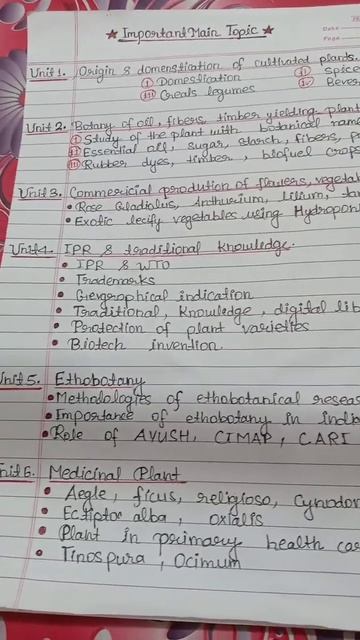 ★ Important Main Topic ★
Date
Page
Unit 1. Origin & domenstication of cultivated plants.
(i) Domestication (ii) Spice
(iii) Creals legumes (iv) Bever
Unit 2. Botany of oil, fibers, timber yielding plant
(i) Study of the plant with botanical name
(ii) Essential oil, sugar, starch, fibers, P
(iii) Rubber dyes, timber, biofuel crops
Unit 3. Commericial prodution of flowers, vegetab
• Rose Gladiolus, Anthurium, Lilium,
• Exotic leafy vegetables using Hydropon
Unit 4. IPR & traditional knowledge.
• IPR & WTO
• Trademarks
• Geogerophical indication
• Traditional, Knowledge, digital lib
• Protection of plant varieties
• Biotech invention.
Unit 5. Ethobotany
• Methologies of ethobotanical reseas
• Importance of ethobotany in India
• Role of AYUSH, CIMAP, CARI
Unit 6. Medicinal Plant
• Aegle, ficus, religioso, Cynodon
• Ecliptor alba, oxialis
• Plant in primary health car
• Tinospura, Ocimum